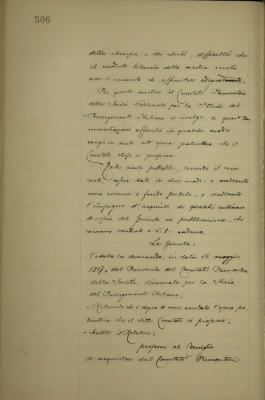 506
della stampa e dei clichè, difficoltà che
il modesto bilancio della nostra società
non ci consente di affrontare
Per questo motivo il Comitato Piemontese
della Società Nazionale per la Storia del
Risorgimento Italiano si rivolge a
amministrazioni affinchè in qualche modo
venga in aiuto all'opera patriottica che il
Comitato stesso si propone.
Tale aiuto potrebbe, secondo il
essere dato in due modi: o mediante
una somma a fondo perduto, o mediante
l'impegno d'acquisto di qualche centinaio
di copie del fascicolo in pubblicazione, che
saranno venduti a L. 2 caduna
La Giunta:
Veduta la domanda, in data 16 maggio
1917, del Presidente del Comitato Piemontese
della Società Nazionale per la Storia
del Risorgimento Italiano;
Ritenuto che è degna di essere aiutata l'opera pa-
triottica che il detto Comitato si propone;
Sentito il Relatore;
propone al Consiglio
di acquistare dal Comitato Piemontese